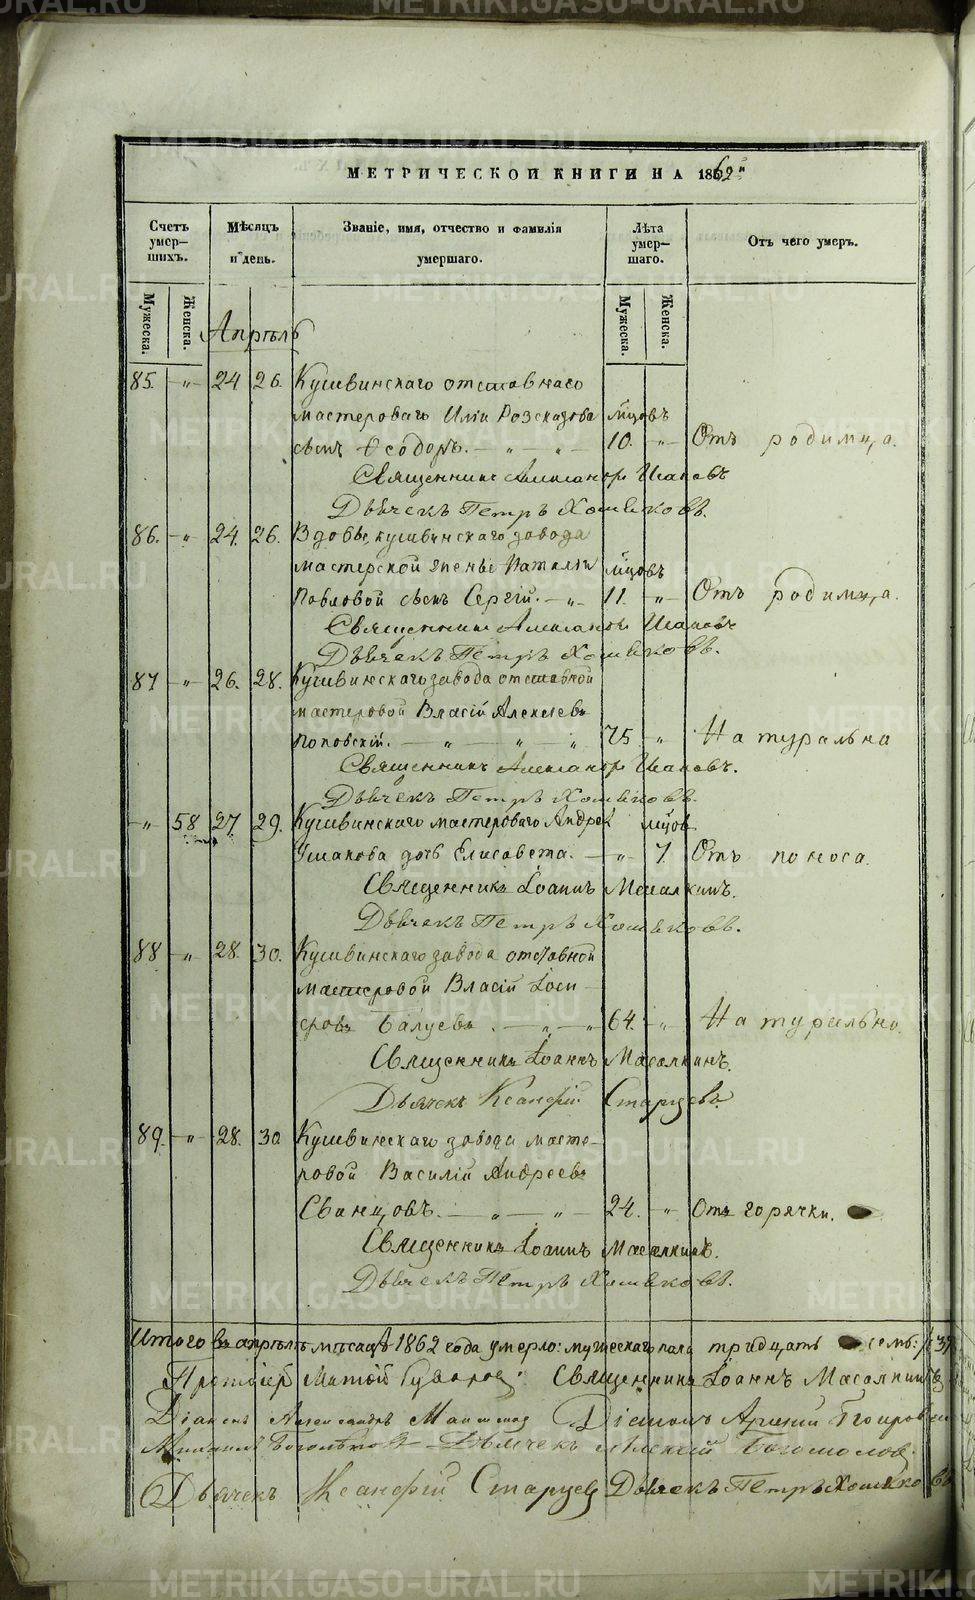 МЕТРИЧЕСКОЙ КНИГИ НА 1862й
Счетъ умер-шихъ. Мѣсяцъ и день. Званіе, имя, отчество и фамилія умершаго. Лѣта умер-шаго. Отъ чего умеръ.
Мужеска. Женска. Апрѣль Мужеска. Женска.
85. „ 24 26. Кушвинскаго отставнаго
мастероваго Иліи Розсказова мцовъ
сынъ Ѳеодоръ. „ „ 10. „ Отъ родимца.
Священникъ Александръ Исаковъ
Дьячекъ Петръ Хомяковъ.
86. „ 24. 26. Вдовы кушвинскаго завода
мастерской жены Наталіи мцовъ
Павловой сынъ Сергій. „ 11. „ Отъ родимца.
Священникъ Александръ Исаковъ
Дьячекъ Петръ Хомяковъ.
87 „ 26. 28. Кушвинскаго завода отставной
мастеровой Власій Алексѣевъ
Поповскій. „ „ „ 75 „ Натурально
Священникъ Александръ Исаковъ.
Дьячекъ Петръ Хомяковъ.
„ 58 27 29. Кушвинскаго мастероваго Андрея мцов
Ушакова дочь Елисавета. „ 7. Отъ поноса.
Священникъ Іоаннъ Масалкинъ.
Дьячекъ Петръ Хомяковъ.
88 „ 28. 30. Кушвинскаго завода отставной
мастеровой Власій Іоси-
фовъ Балуевъ. „ „ 64. „ Натурально.
Священникъ Іоаннъ Масалкинъ.
Дьячекъ Ксанфій Старцевъ.
89. „ 28. 30 Кушвинскаго завода масте-
ровой Василій Андреевъ
Сванцовъ. „ „ 24. „ Отъ горячки.
Священникъ Іоаннъ Масалкинъ.
Дьячекъ Петръ Хомяковъ.
Итого въ апрѣлѣ мѣсяцѣ 1862 года умерло: мужескаго пола тридцать семь: /37
Протоіерей Священникъ Іоаннъ Масалкинъ
Діаконъ Александръ Діаконъ
Михаилъ Дьячекъ Алексій Богомоловъ.
Дьячекъ Ксанфій Старцевъ Дьячекъ Петръ Хомяковъ
METRIKI.GASO-URAL.RU